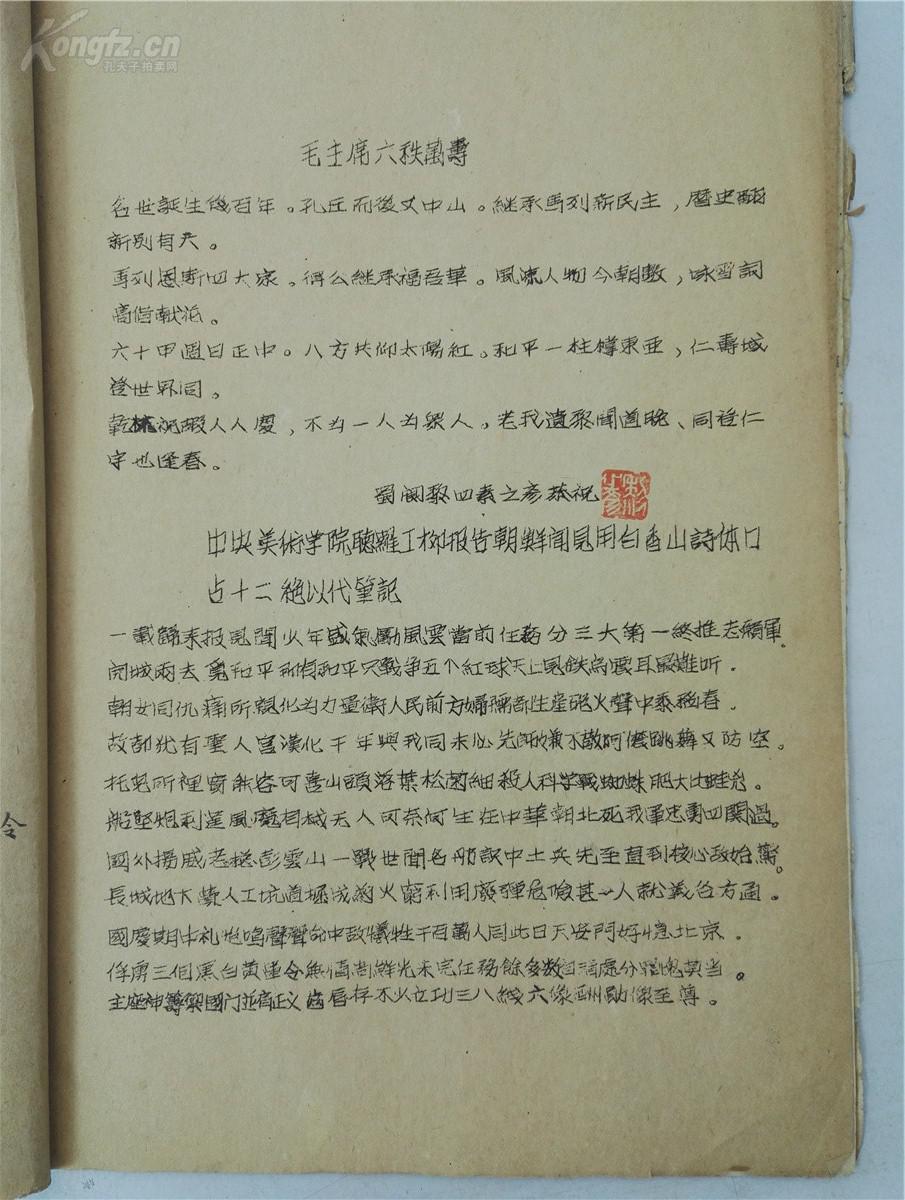 Kongfz.cn
孔夫子拍卖网
毛主席六秩萬壽
名世誕生幾百年。孔丘而後又中山。継承馬列新民主，曆史翻
新别有天。
馬列恩斯四大家。得公継承福吾華。風流人物今朝數，咏雪詞
高偕献派。
六十甲週日正中。八方共仰太陽紅。和平一柱撑東亜，仁壽域
登世界同。
乾坤祝嘏人人慶，不为一人为眾人。老我遺黎聞道晚、同登仁
宇也逢春。
蜀閬黎四素之彦恭祝
中央美術学院聽羅工柳报告朝鲜聞見用白香山詩体口
占十二絶以代筆記
一載歸来报見聞火年盛氣動風雲當前任務分三大第一終推志願軍
開城兩去覓和平所有和平只戰争五个紅球天上見鉄鳥要耳最難听．
朝女同仇痛所親化为力量衛人民前方婦孺皆生産砲火聲中黍稷春．
故都犹有聖人宫漢化千年與我同未必先師誅不敬阿儂跳舞又防空．
托兒所裡窗無容可憙山頭落葉松菌細殺人科学戰蜘蛛肥大比蛙兇．
船堅炮利逞風魔自械无人可奈何生在中華朝北死我軍忠勇四関過．
國外揚威老總彭雲山一戰世聞名舫訳中土兵先至直到核心敌始驚．
長城地下藉人工坑道掘成納火藭利用廢弹危險甚一人就義各方通．
國慶期中礼炮鳴聲聲命中敌犠牲千百萬人同此日天安門好憶北京．
俘虜三個黑白黄運令無
主座神籌築國门並肩正义齒唇存不火立功三八綫六億酬勛像至尊．
令